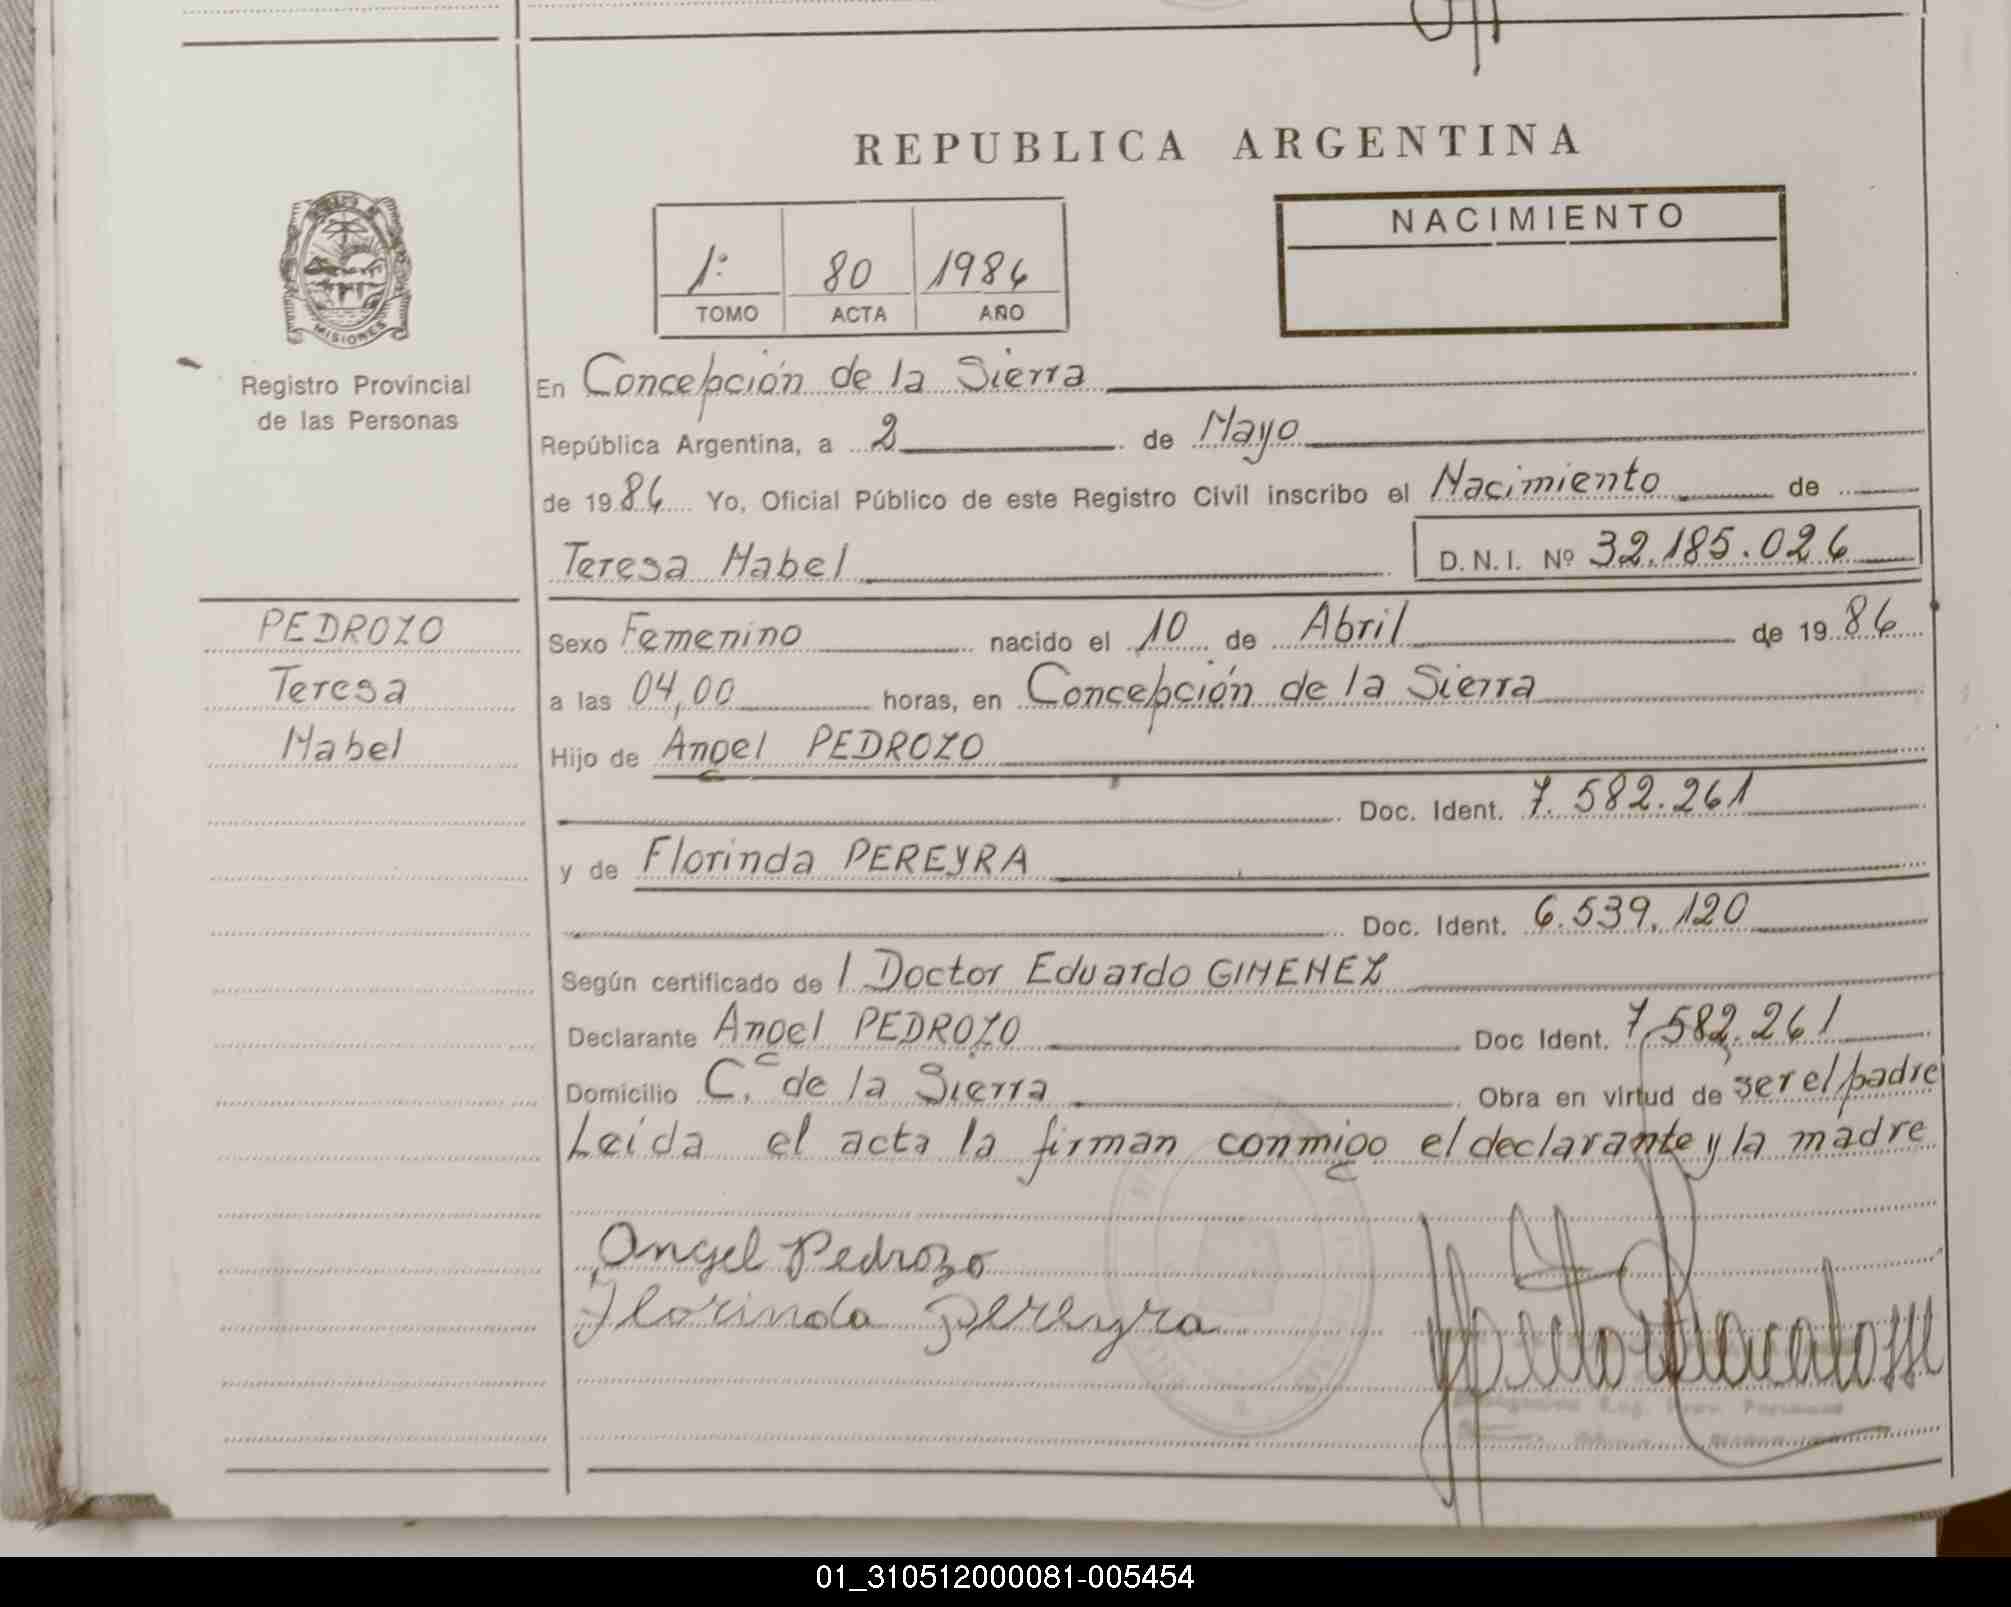 REPUBLICA ARGENTINA
MISIONES
Registro Provincial
de las Personas
NACIMIENTO
1º 80 1986
TOMO ACTA AÑO
En Concepción de la Sierra
República Argentina, a 2 de Mayo
de 1986 Yo, Oficial Público de este Registro Civil inscribo el Nacimiento de
Teresa Mabel D.N.I. Nº 32.185.026
PEDROZO
Teresa
Mabel
Sexo Femenino nacido el 10 de Abril de 1986
a las 04,00 horas, en Concepción de la Sierra
Hijo de Angel PEDROZO
Doc. Ident. 7.582.261
y de Florinda PEREYRA
Doc. Ident. 6.539.120
Según certificado de l Doctor Eduardo GIMENEZ
Declarante Angel PEDROZO Doc Ident. 7.582.261
Domicilio C. de la Sierra Obra en virtud de ser el padre
Leída el acta la firman conmigo el declarante y la madre
Angel Pedrozo
Florinda Pereyra
01_310512000081-005454